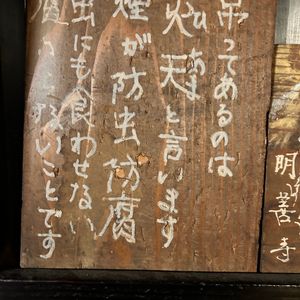 吊ってあるのは
火天と言います
あま
煙が防虫防腐
虫にも食わせない
腐らないことです
明善寺